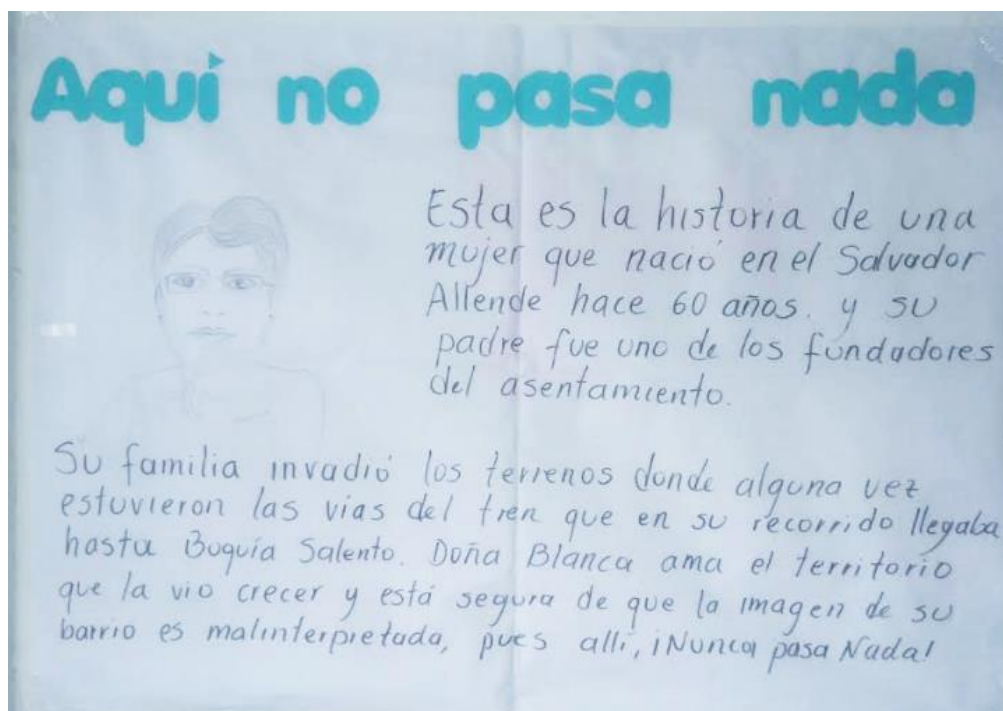 Aquí no pasa nada
Esta es la historia de una
mujer que nació en el Salvador
Allende hace 60 años. y su
padre fue uno de los fundadores
del asentamiento.
Su familia invadió los terrenos donde alguna vez
estuvieron las vias del tren que en su recorrido llegaba
hasta Boquía Salento. Doña Blanca ama el territorio
que la vio crecer y está segura de que la imagen de su
barrio es malinterpretada, pues allí, ¡Nunca pasa Nada!